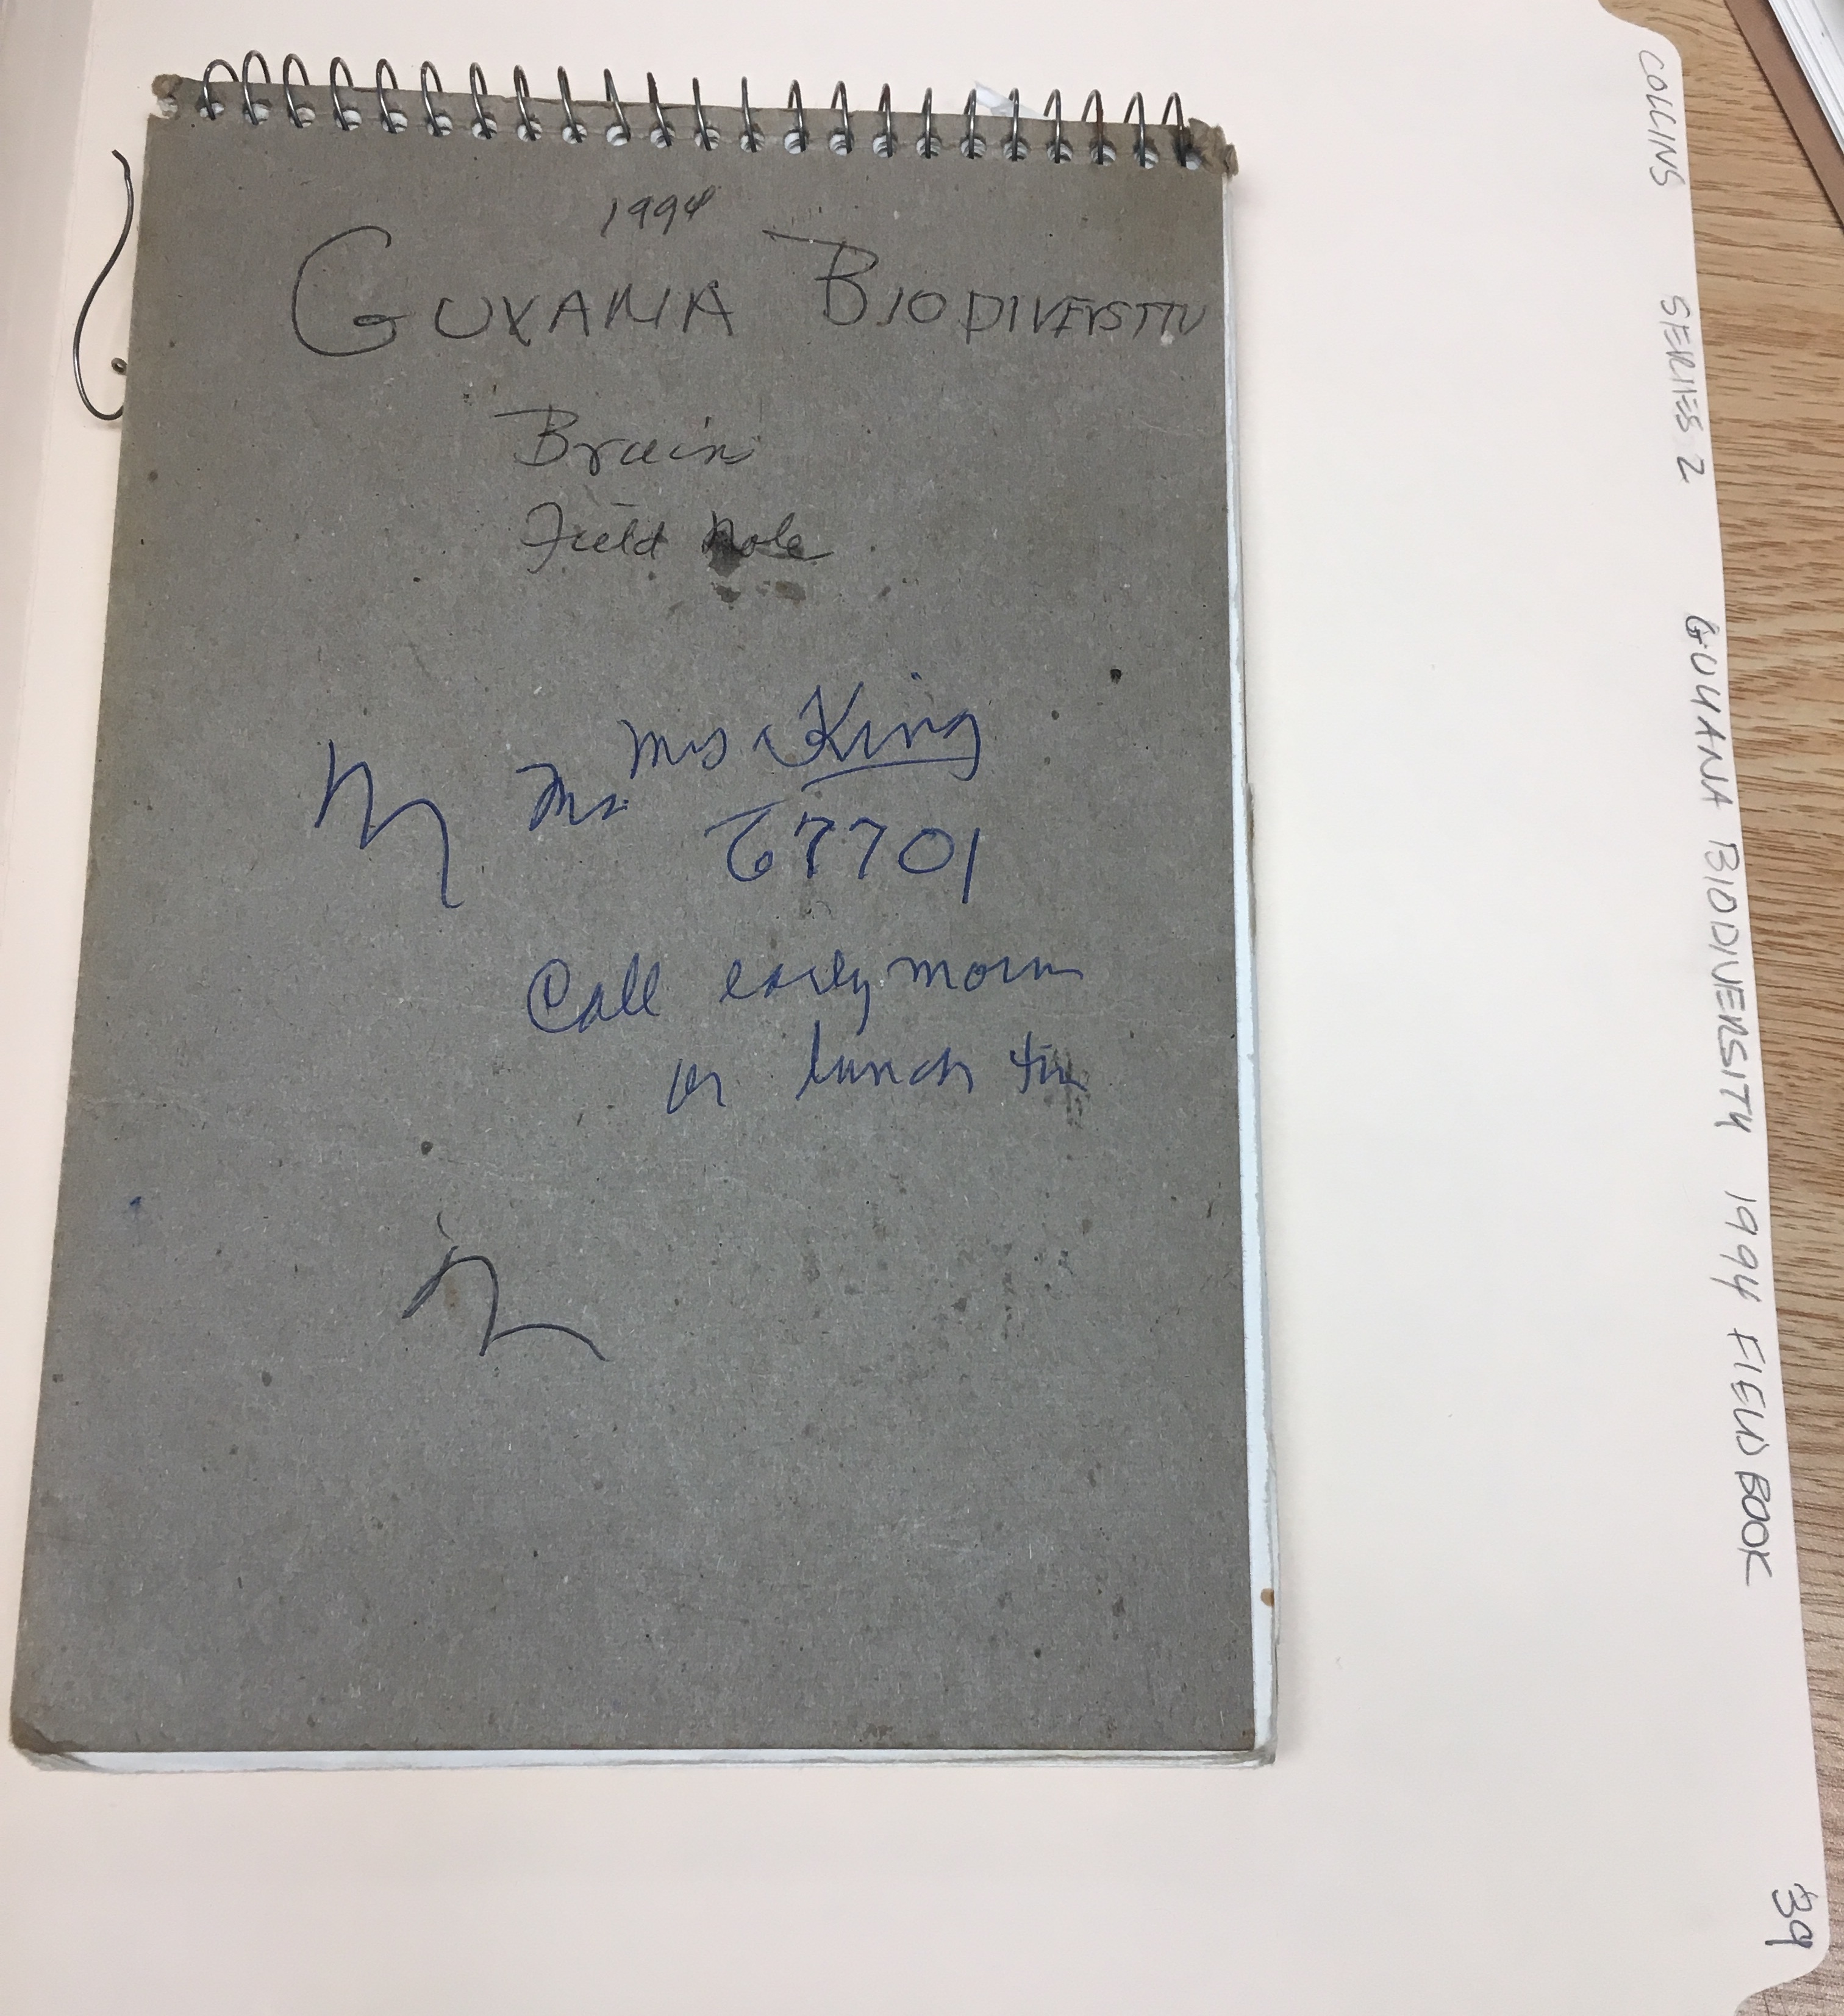 1994
GUYANA BIODIVERSITY
Brain
Field Note
Mrs King
Ms.
67701
Call early morn
or lunch tim
COLLINS SERIES 2 GUYANA BIODIVERSITY 1994 FIELD BOOK 39